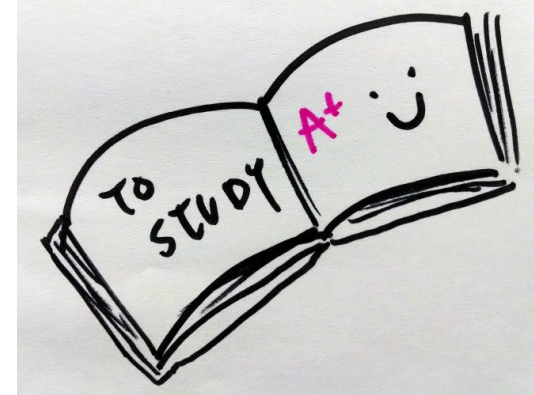 TO
STUDY
A+